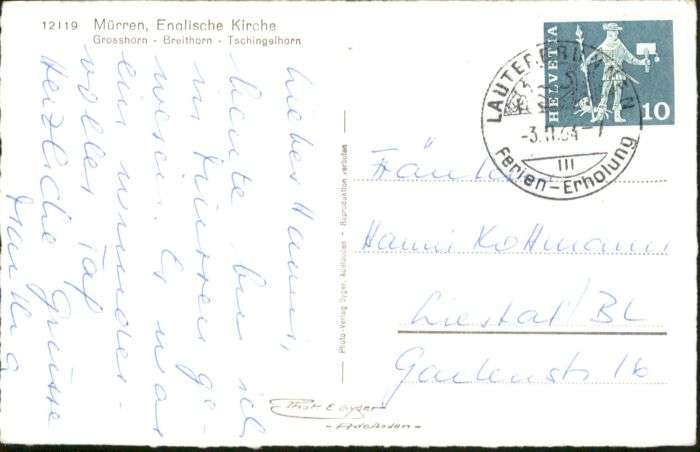 12119 Mürren, Englische Kirche
Grosshorn - Breithorn - Tschingelhorn
Liebes Hanni,
heute bin ich
in Mürren ge-
wesen. Es war
ein wunder-
voller Tag
Herzliche Grüsse
Photo-Verlag Gyger, Adelboden - Reproduktion verboten
HELVETIA
10
LAUTERBRUNNEN
III
Ferien-Erholung
Fräulein
Hanni Kottmann
Liestal / BL
Gartenstr 16
Phot E Gyger
- Adelboden -